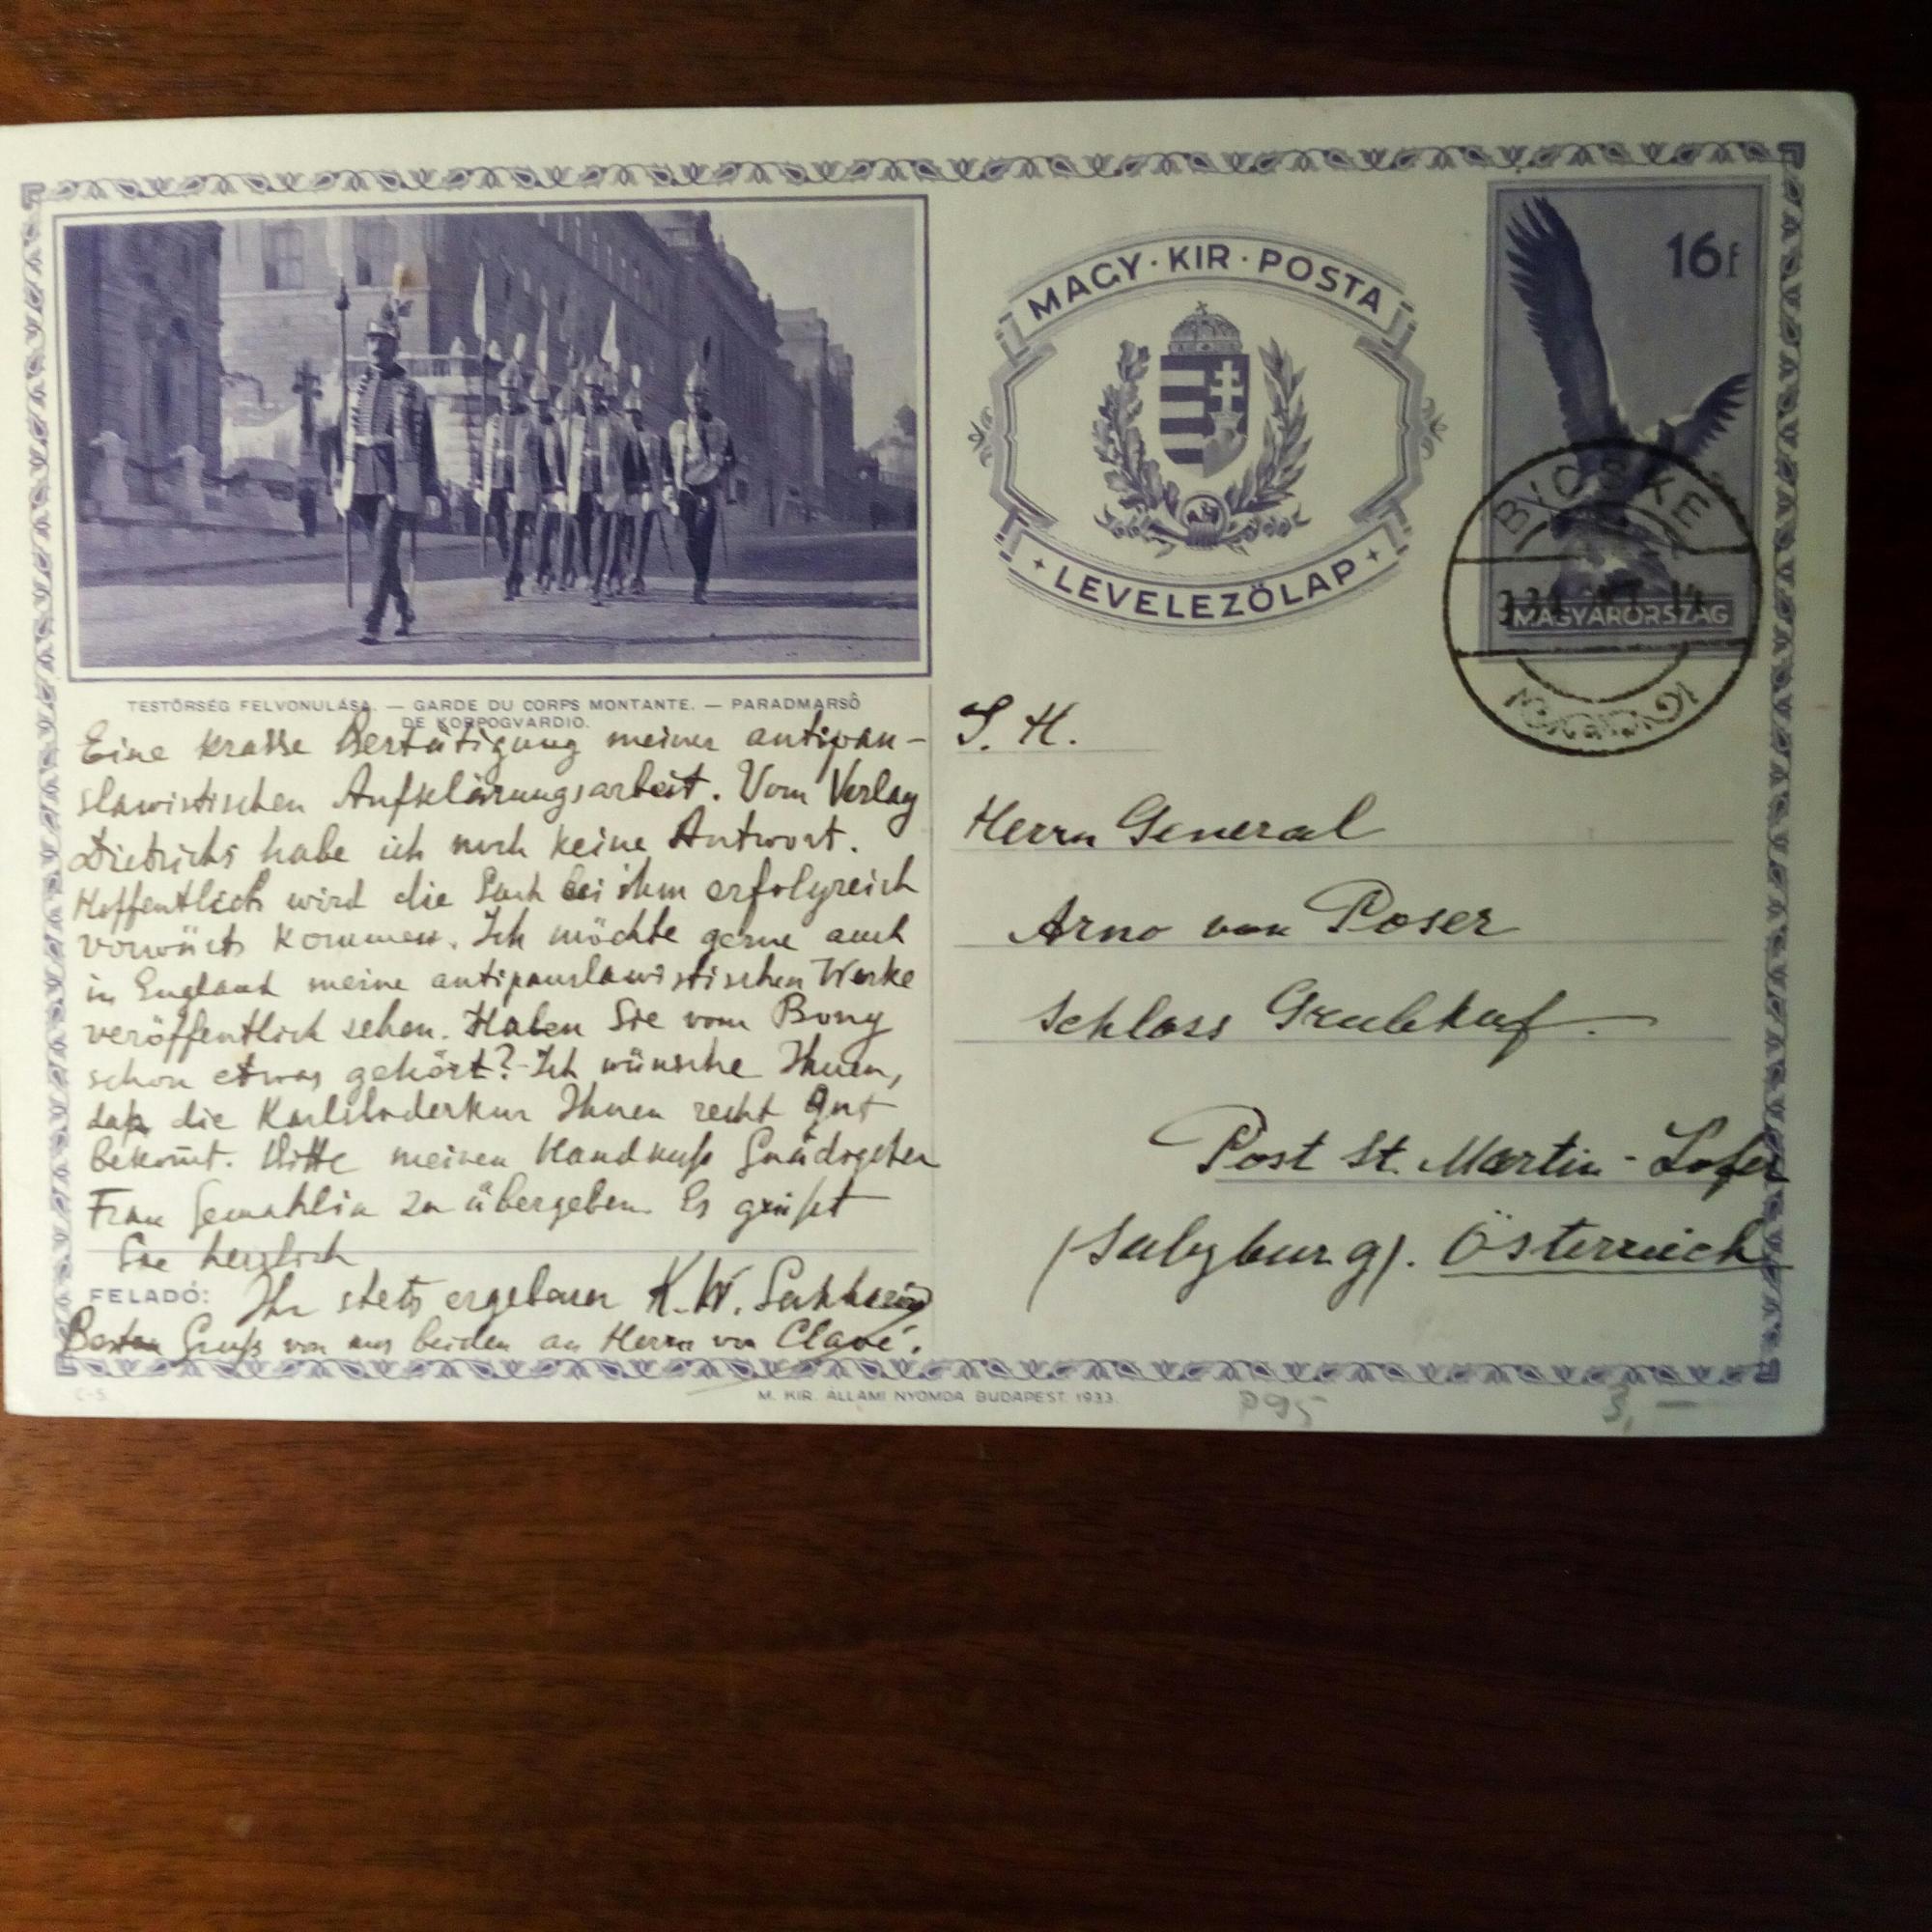 TESTŐRSÉG FELVONULÁSA. — GARDE DU CORPS MONTANTE. — PARADMARŜO
DE KORPOGVARDIO.
Eine krasse Bestätigung meiner antipan-
slawistischen Aufklärungsarbeit. Vom Verlag
Dietrichs habe ich noch keine Antwort.
Hoffentlich wird die Sach bei ihm erfolgreich
vorwärts kommen. Ich möchte gerne auch
in England meine antipanslawistischen Werke
veröffentlich sehen. Haben Sie vom Bong
schon etwas gehört? Ich wünsche Ihnen,
daß die Karlsbaderkur Ihnen recht gut
bekom̄t. Bitte meinen Handkuß Gnädigsten
Frau Gemahlin zu übergeben. Es grüßt
Sie herzlich
FELADÓ: Ihr stets ergebener K. W.
Besten Gruß von uns beiden an Herrn von Clavé.
MAGY·KIR·POSTA
LEVELEZŐLAP
16f
MAGYARORSZAG
BICSKE
S. H.
Herrn General
Arno von Poser
Schloss Grubhof.
Post St. Martin-Lofer
(Salzburg). Österreich
C-5.
M. KIR. ÁLLAMI NYOMDA BUDAPEST. 1933.
P95
3,—